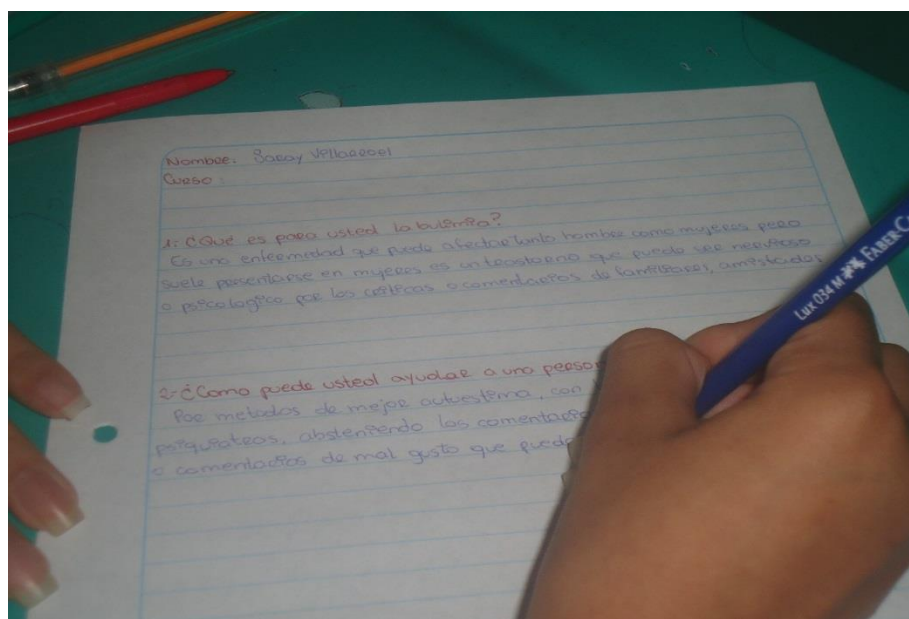 Nombre: Saray Villarroel
Curso:
1: ¿Qué es para usted la bulimia?
Es una enfermedad que puede afectar tanto hombre como mujeres pero
suele presentarse en mujeres es un trastorno que puede ser nervioso
o psicologico por las criticas o comentarios de familiares, amistades
2- ¿Como puede usted ayudar a una
Por metodos de mejor autoestima, con
psiquiatras, absteniendo los
o comentarios de mal gusto que
Lux 034 M FABER